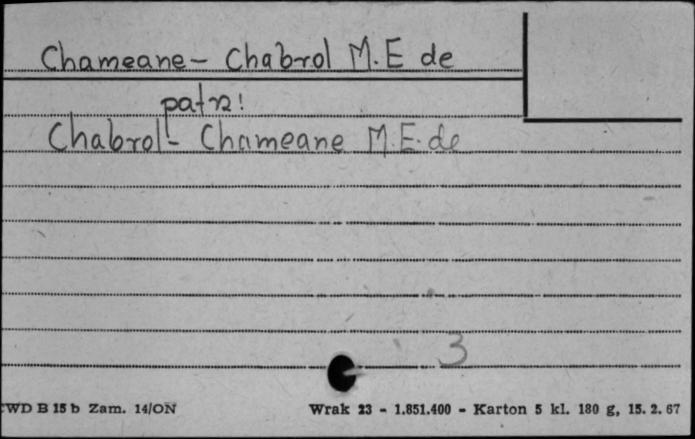 Chameane - Chabrol M.E de
patrz!
Chabrol - Chameane M.E. de
3
WD B 15 b Zam. 14/ON Wrak 23 - 1.851.400 - Karton 5 kl. 180 g, 15. 2. 67